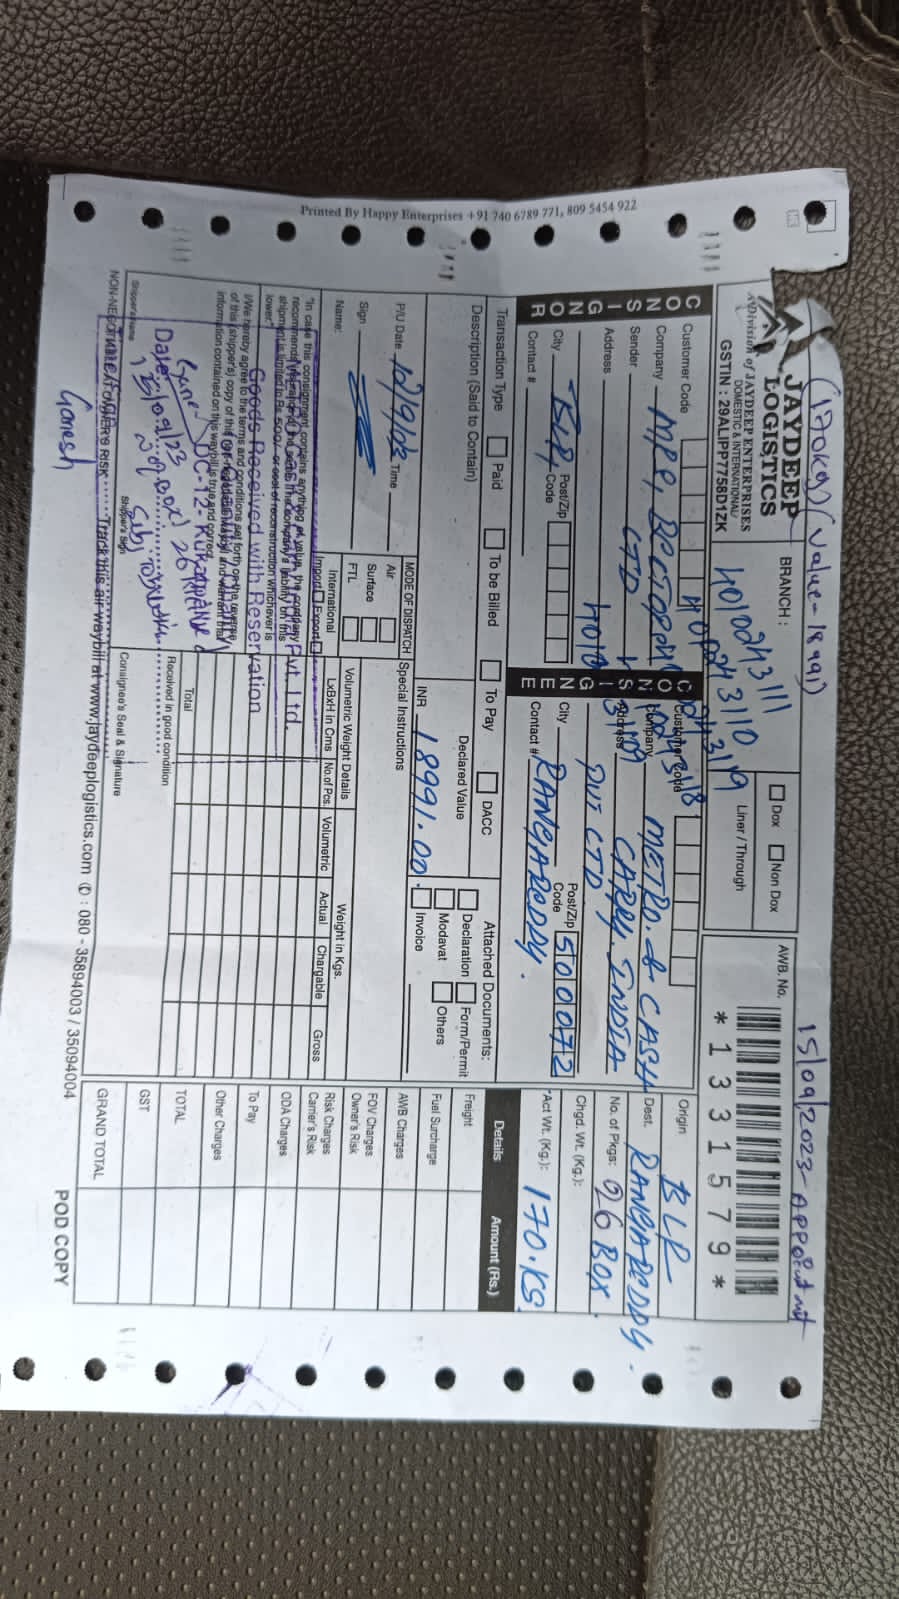 (170kg) (Value-18991)
15/09/2023- Appointmnt
JAYDEEP
LOGISTICS
A Division of JAYDEEP ENTERPRISES
DOMESTIC & INTERNATIONAL
GSTIN : 29ALIPP7758D1ZK
BRANCH :
Dox
Non Dox
Liner / Through
AWB. No.
*1331579*
CONSIGNOR
Customer Code
Company
Sender
LTD
Address
City
BLR
Post/Zip
Code
Contact #
CONSIGNEE
Customer Code
Company METRO & CASH
CARRY INDIA
Address
PVT LTD
City RANGAREDDY.
Post/Zip
Code 500072
Contact #
Origin BLR
Dest. RANGAREDDY.
No. of Pkgs: 26 BOX.
Chgd. Wt. (Kg.):
Act Wt. (Kg.): 170.KS
Transaction Type
Paid
To be Billed
To Pay
DACC
Description (Said to Contain)
Declared Value
INR 18991.00
Attached Documents:
Declaration
Form/Permit
Modavat
Others
Invoice
Details
Amount (Rs.)
Freight
Fuel Surcharge
AWB Charges
FOV Charges
Owner's Risk
Risk Charges
Carrier's Risk
ODA Charges
To Pay
Other Charges
TOTAL
GST
GRAND TOTAL
P/U Date
Time
Sign
Name:
MODE OF DISPATCH
Air
Surface
FTL
International
Import
Export
Special Instructions
Volumetric Weight Details
Weight in Kgs.
LxBxH in Cms
No.of Pcs.
Volumetric
Actual
Chargable
Gross
Total
"In case this consignment contains anything of value, the company
shipment is limited to Rs. 500/- or cost of reconstruction whichever is
lower."
I/We hereby agree to the terms and conditions set forth on the reverse
of this (shipper's) copy of this
information contained on this waybill is true and correct.
Goods Received with Reservation
Pvt. Ltd.
Date
Shipper's Name
Shipper's Sign
Received in good condition
Consignee's Seal & Signature
NON-NEGOTIABLE AT OWNER'S RISK
Track this air waybill at www.jaydeeplogistics.com ✆ : 080 - 35894003 / 35094004
POD COPY
Ganesh
Printed By Happy Enterprises +91 740 6789 771, 809 5454 922